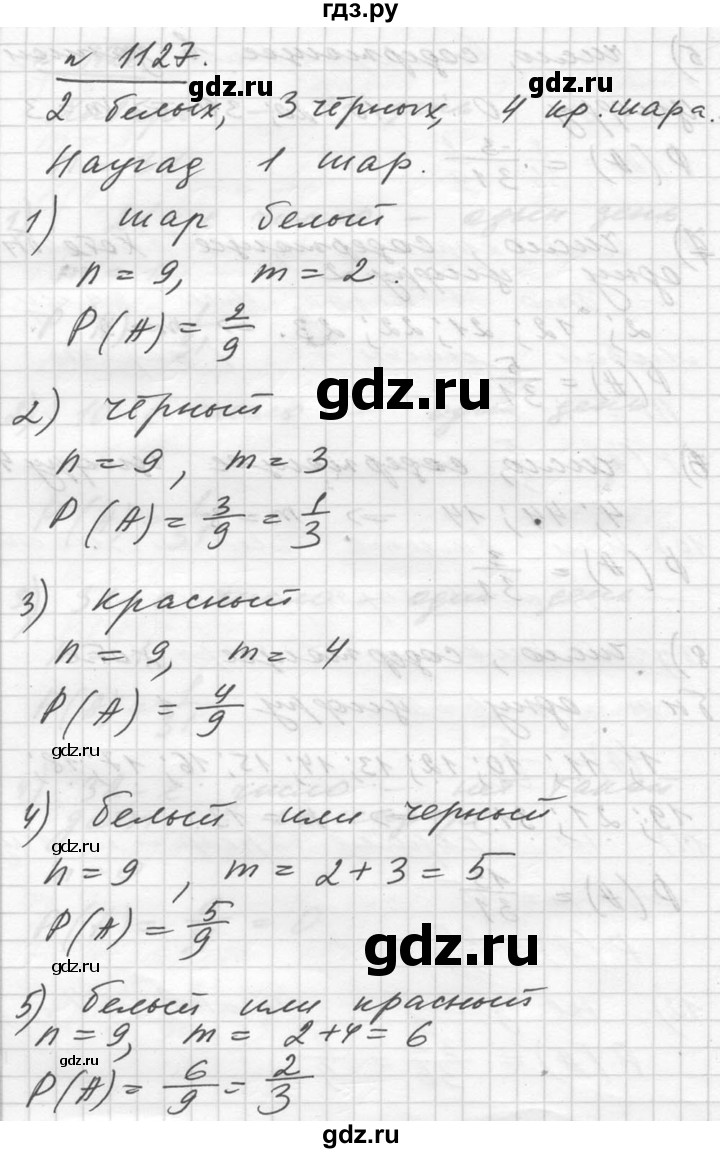 гдз.ру
n 1127.
gdz.ru gdz.ru
2 белых, 3 чёрных, 4 кр. шара.
Наугад 1 шар.
1) шар белый
n = 9, m = 2.
P(A) = 2/9
gdz.ru
2) чёрный
n = 9, m = 3
P(A) = 3/9 = 1/3
3) красный
n = 9, m = 4
P(A) = 4/9
gdz.ru
4) белый или черный
gdz.ru
n = 9, m = 2 + 3 = 5
P(A) = 5/9
gdz.ru
gdz.ru
5) белый или красный
n = 9, m = 2 + 4 = 6
gdz.ru
P(A) = 6/9 = 2/3
gdz.ru